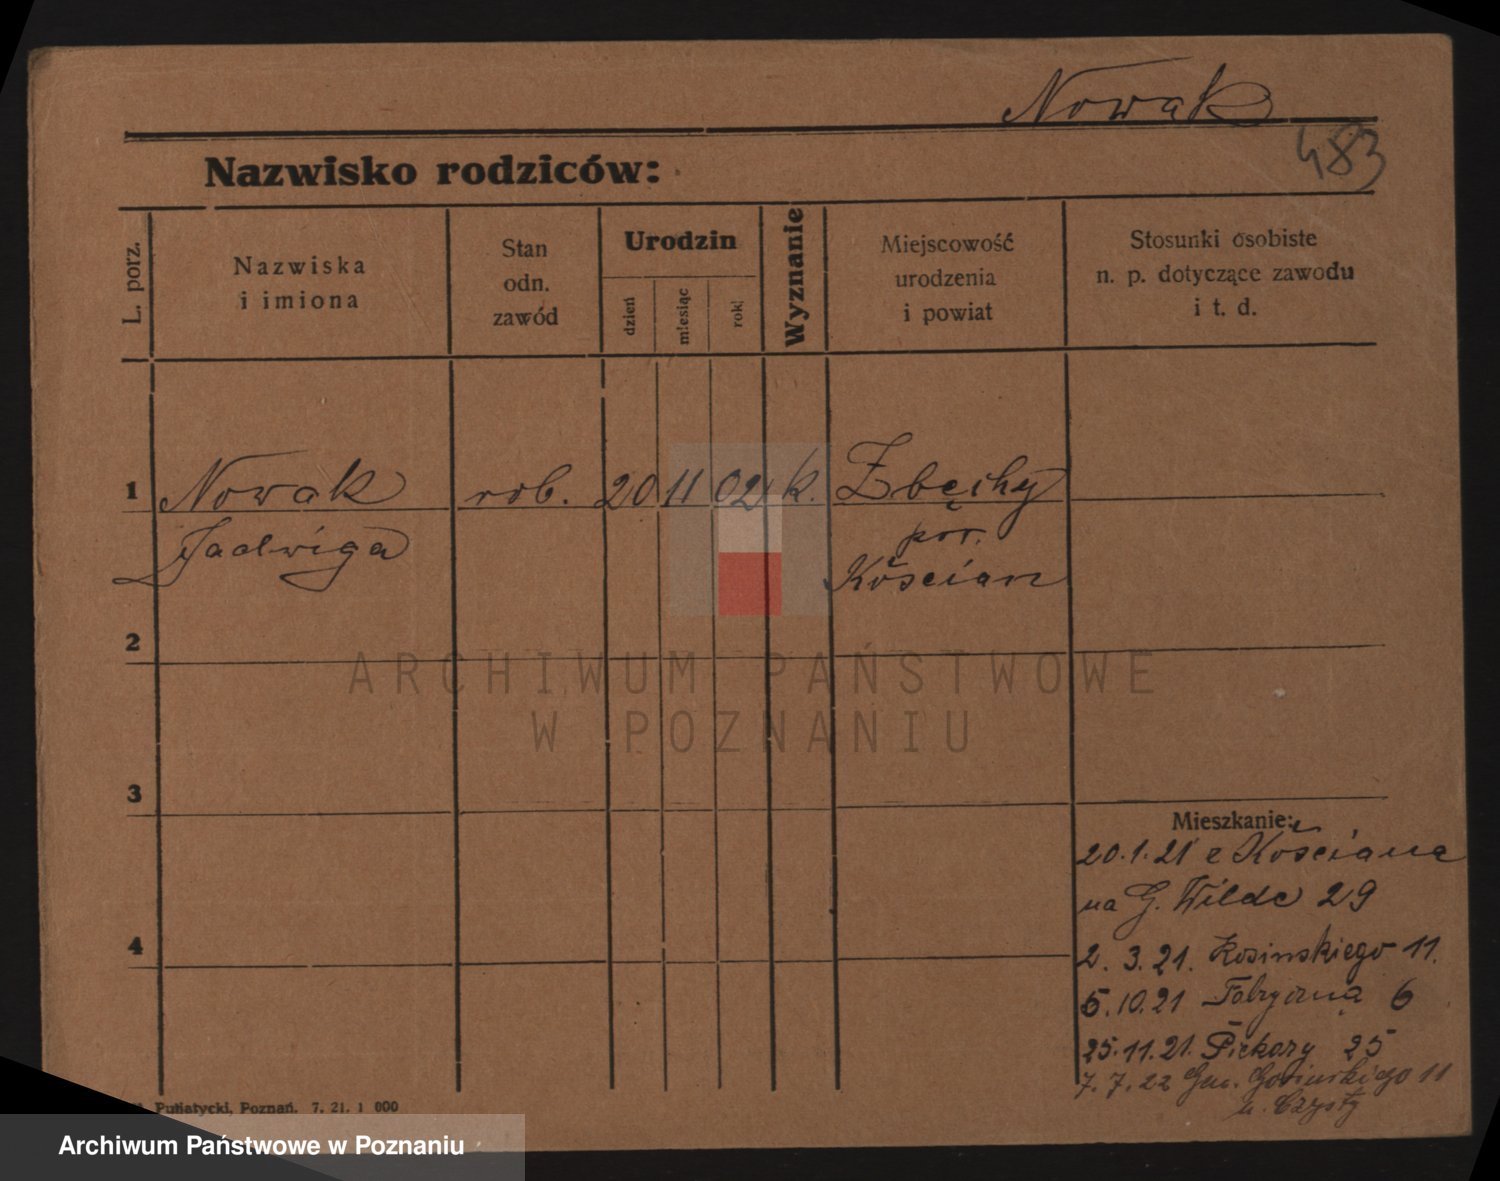 Nowak
483
Nazwisko rodziców:
L. porz.
Nazwiska
i imiona
Stan
odn.
zawód
Urodzin
dzień
miesiąc
rok
Wyznanie
Miejscowość
urodzenia
i powiat
Stosunki osobiste
n. p. dotyczące zawodu
i t. d.
1 Nowak rob. 20 11 02 k. Zbęchy
Jadwiga pow.
Kościan
2
ARCHIWUM PAŃSTWOWE
W POZNANIU
3
Mieszkanie:
20.1.21 z Kościana
na G. Wilde 29
4
2. 3. 21. Kosinskiego 11.
5.10.21 Fabryczna 6
25.11.21. Piekary 25
7. 7. 22 Gen. Kosinskiego 11
u. Czysty
Putiatycki, Poznań. 7. 21. 1 000
Archiwum Państwowe w Poznaniu